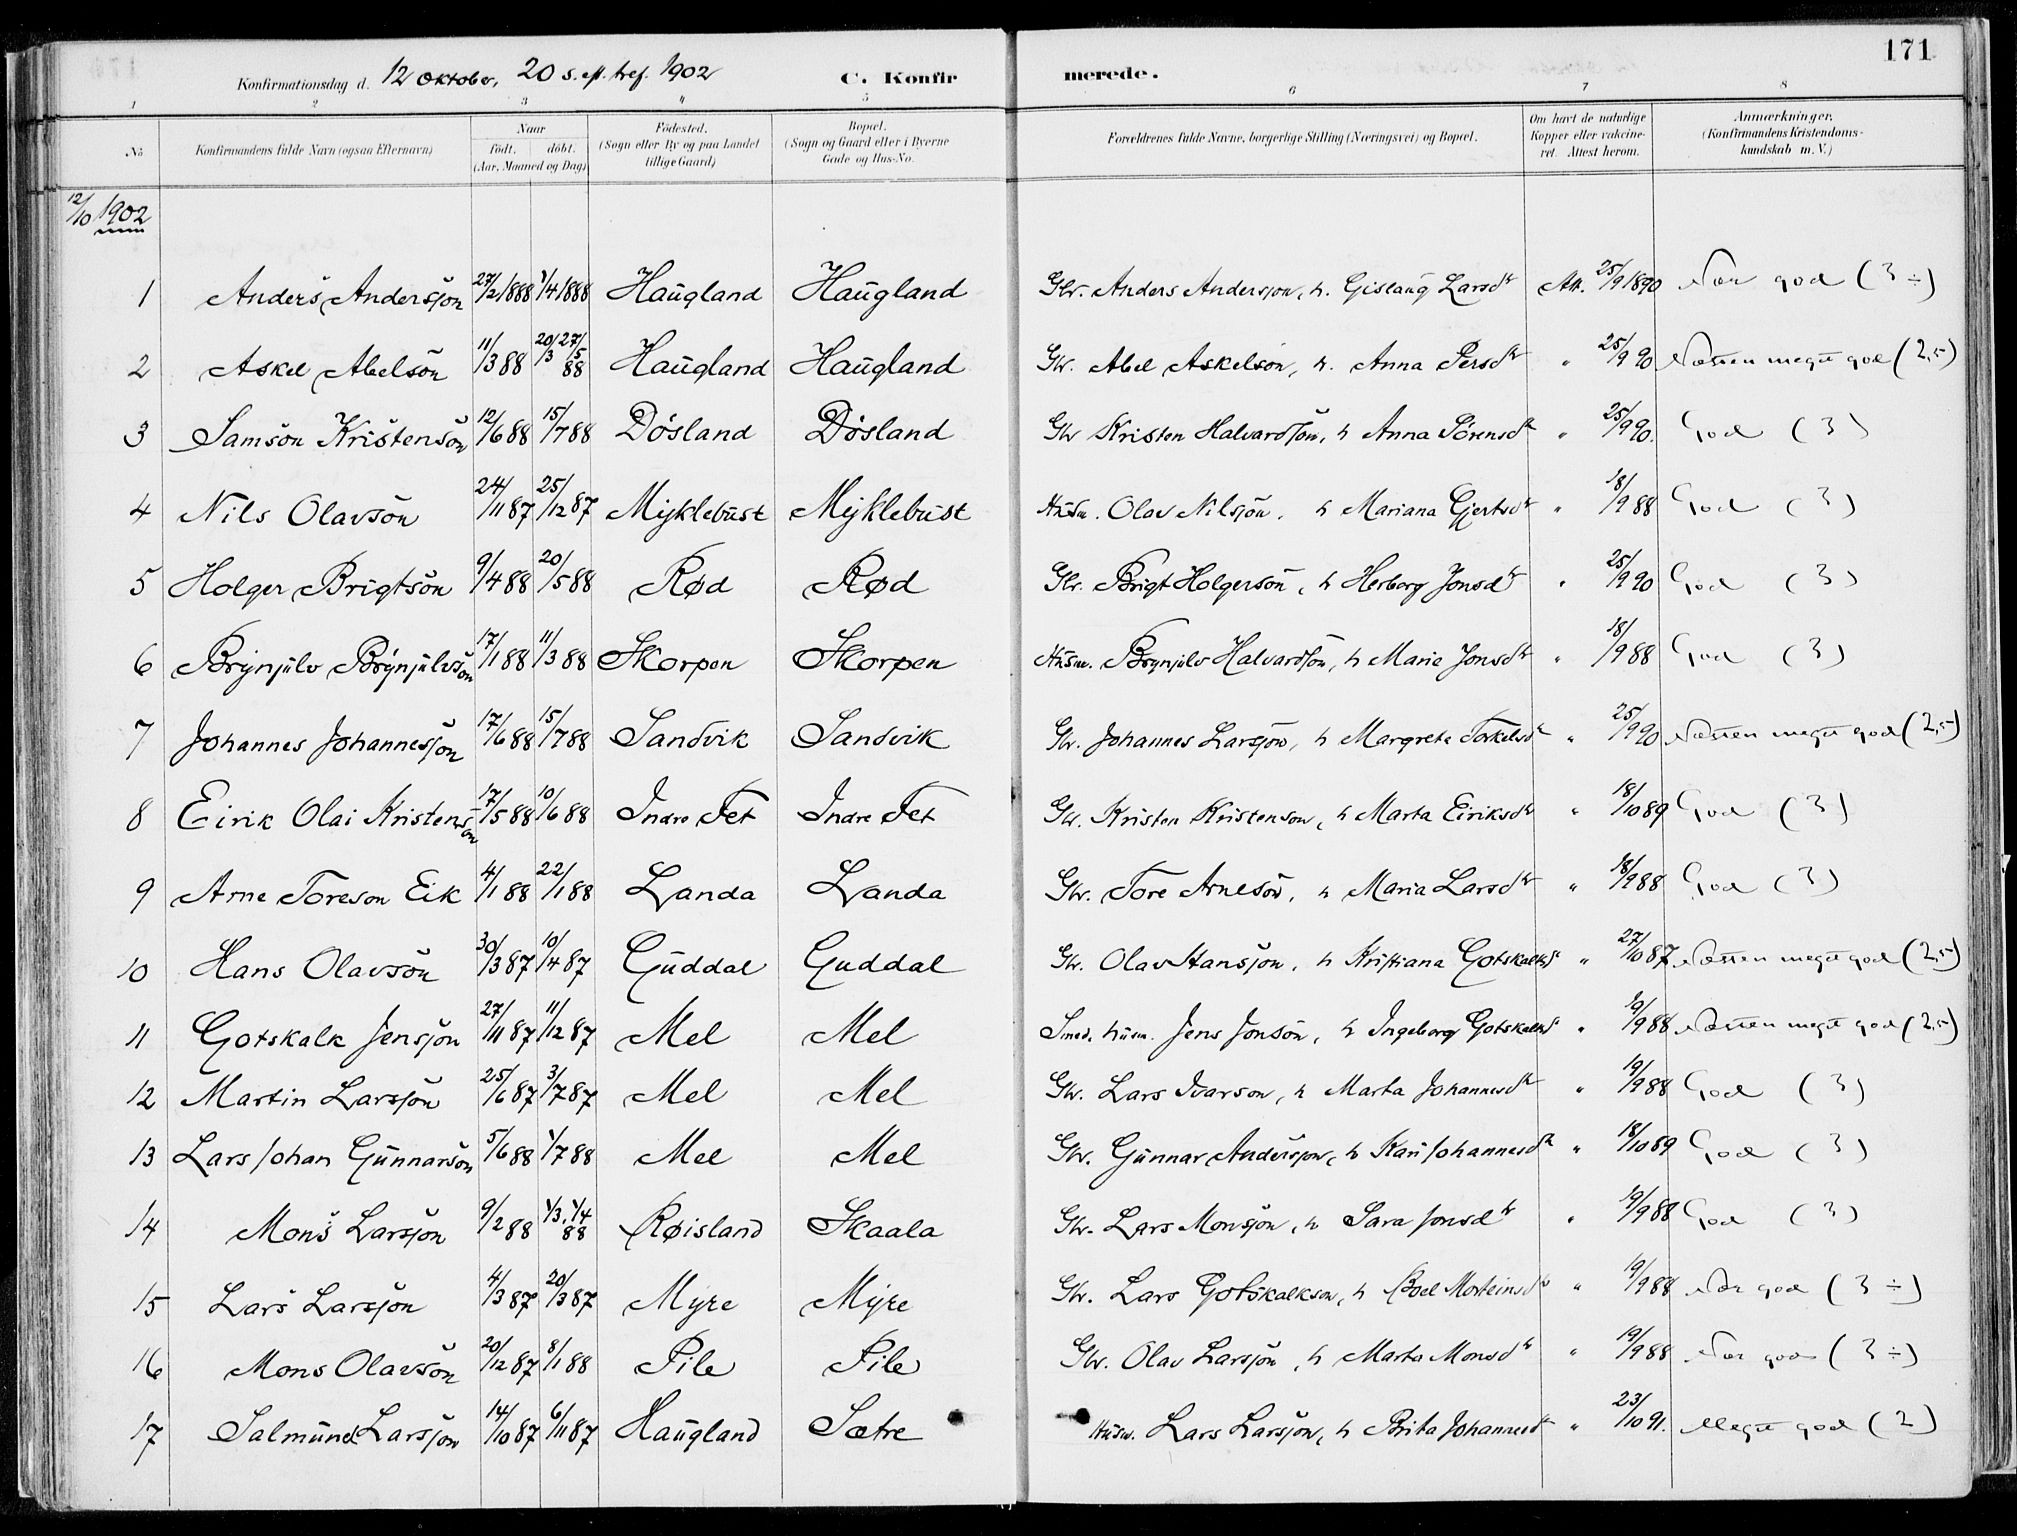 171
Konfirmationsdag d. 12 Oktober, 20 s. eft. tref. 1902 C. Konfirmerede.
1 2 3 4 5 6 7 8
No Konfirmandens fulde Navn (ogsaa Efternavn) Naar født. døbt. (Aar, Maaned og Dag) Fødested. (Sogn eller By og paa Landet tillige Gaard) Bopæl. (Sogn og Gaard eller i Byerne Gade og Hus-No. Forældrenes fulde Navne, borgerlige Stilling (Næringsvei) og Bopæl. Om havt de naturlige Kopper eller vakcineret. Attest herom. Anmærkninger, (Konfirmandens Kristendomskundskab m. V.)
12/10 1902
1 Anders Andersjon 27/2 1888 1/4 1888 Haugland Haugland Gbr. Anders Andersjon, h. Gislaug Larsdtr Att. 25/9 1890 Nær god (3 ÷)
2 Askel Abelsön 11/3 88 20/3 27/5 88 Haugland Haugland Gbr. Abel Askelson, h. Anna Persdtr " 25/9 90 Næsten meget god (2,5)
3 Samson Kristensön 12/6 88 15/7 88 Dösland Dösland Gbr Kristen Halvardson, h Anna Sörensdtr " 25/9 90. God (3)
4 Nils Olavsön 24/11 87 25/12 87 Myklebust Myklebust Husm. Olav Nilsjön, h Mariana Gjertsdtr " 18/9 88 God (3)
5 Holger Brigtsön 9/4 88 20/5 88 Rød Rød Gbr. Brigt Holgerson, h Herborg Jonsdtr " 25/9 90 God (3)
6 Brynjulv Brynjulvson 17/1 88 11/3 88 Skorpen Skorpen Husm. Brynjulv Halvardson, h Marie Jonsdtr " 18/9 88 God (3)
7 Johannes Johannesjon 17/6 88 15/7 88 Sandvik Sandvik Gbr. Johannes Larsjon, h Margreta Torkelsdtr " 25/9 90 Næsten meget god (2,5)
8 Eirik Olai Kristenson 17/5 88 10/6 88 Indre Fet Indre Fet Gbr. Kristen Kristenson, h Marta Eiriksdtr " 18/10 89 God (3)
9 Arne Toreson Eik 4/1 88 22/1 88 Landa Landa Gbr. Tore Arneson, h Maria Larsdtr " 18/9 88 God (3)
10 Hans Olavsön 30/3 87 10/4 87 Guddal Guddal Gbr. Olav Hansjon, h Kristiana Gotskalksd " 27/10 87 Næsten meget god (2,5)
11 Gotskalk Jensjon 27/11 87 11/12 87 Mel Mel Smed, husm. Jens Jonsön, h Ingeborg Gotskalksd " 19/9 88 Næsten meget god (2,5)
12 Martin Larsjon 25/6 87 3/7 87 Mel Mel Gbr. Lars Ivarson, h Marta Johannesdtr " 19/9 88 God (3)
13 Lars Johan Gunnarsön 5/6 88 1/7 88 Mel Mel Gbr. Gunnar Andersjon, h Kari Johannesdtr " 18/10 89 God (3)
14 Mons Larsjon 9/2 88 1/3, 1/4 88 Røisland Skaala Gbr. Lars Monsjon, h Sara Jonsdtr " 19/9 88 God (3)
15 Lars Larsjon 4/3 87 20/3 87 Myre Myre Gbr. Lars Gotskalkson, h Boel Morteinsdtr " 19/9 88 Nær god (3 ÷)
16 Mons Olavsön 20/12 87 8/1 88 Pile Pile Gbr. Olav Larsjon, h Marta Monsdtr " 19/9 88 Nær god (3 ÷)
17 Salmund Larsjon 14/10 87 6/11 87 Haugland Sætre Husm. Lars Larsjon, h Brita Johannesdtr " 23/10 91. Meget god (2)